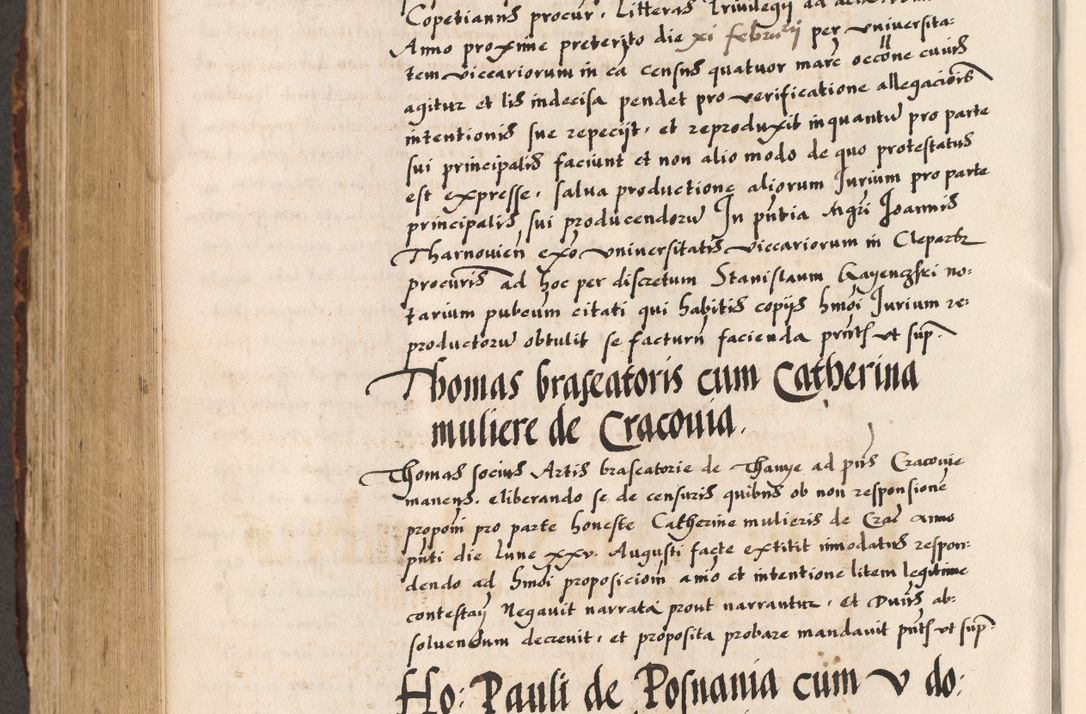 Copetianus procur. Litteras Privilegij ad
Anno proxime preterito die xi februarij per vniversita-
tem viccariorum in ea census quatuor marc occõne cuius
agitur et lis indecisa pendet pro verificatione allegaciõis
intentionis sue repecijt, et reproduxit inquantũ pro parte
sui principalis faciunt et non alio modo de quo protestatus
est expresse, salua productione aliorum Jurium pro parte
principalis sui producendorũ In pñtia Mgri Joannis
Tharnouien exõ vniversitatis viccariorum in Clepartz
procuris ad hoc per discretum Stanislaum Kayenczski no-
tarium pubcum citati qui habitis copijs hmõi Jurium re-
productorũ obtulit se facturũ facienda pñts vt sup.
Thomas braseatoris cum Catherina
muliere de Cracouia.
Thomas socius Artis braseatorie de ad pñs Cracouie
manens. eliberando se de censuris quibus ob non responsionẽ
propom̃ pro parte honeste Catherine mulieris de Crac anno
pñti die lune xxv. Augusti facte extitit inodatus respon-
dendo ad hmõi proposicioñ animo et intentione litem legitime
contestañ Negauit narrata prout narrantur, et Duus ab-
soluendum decreuit, et proposita probare mandauit pñts vt sup.
Ho: Pauli de Posnania cum v do: